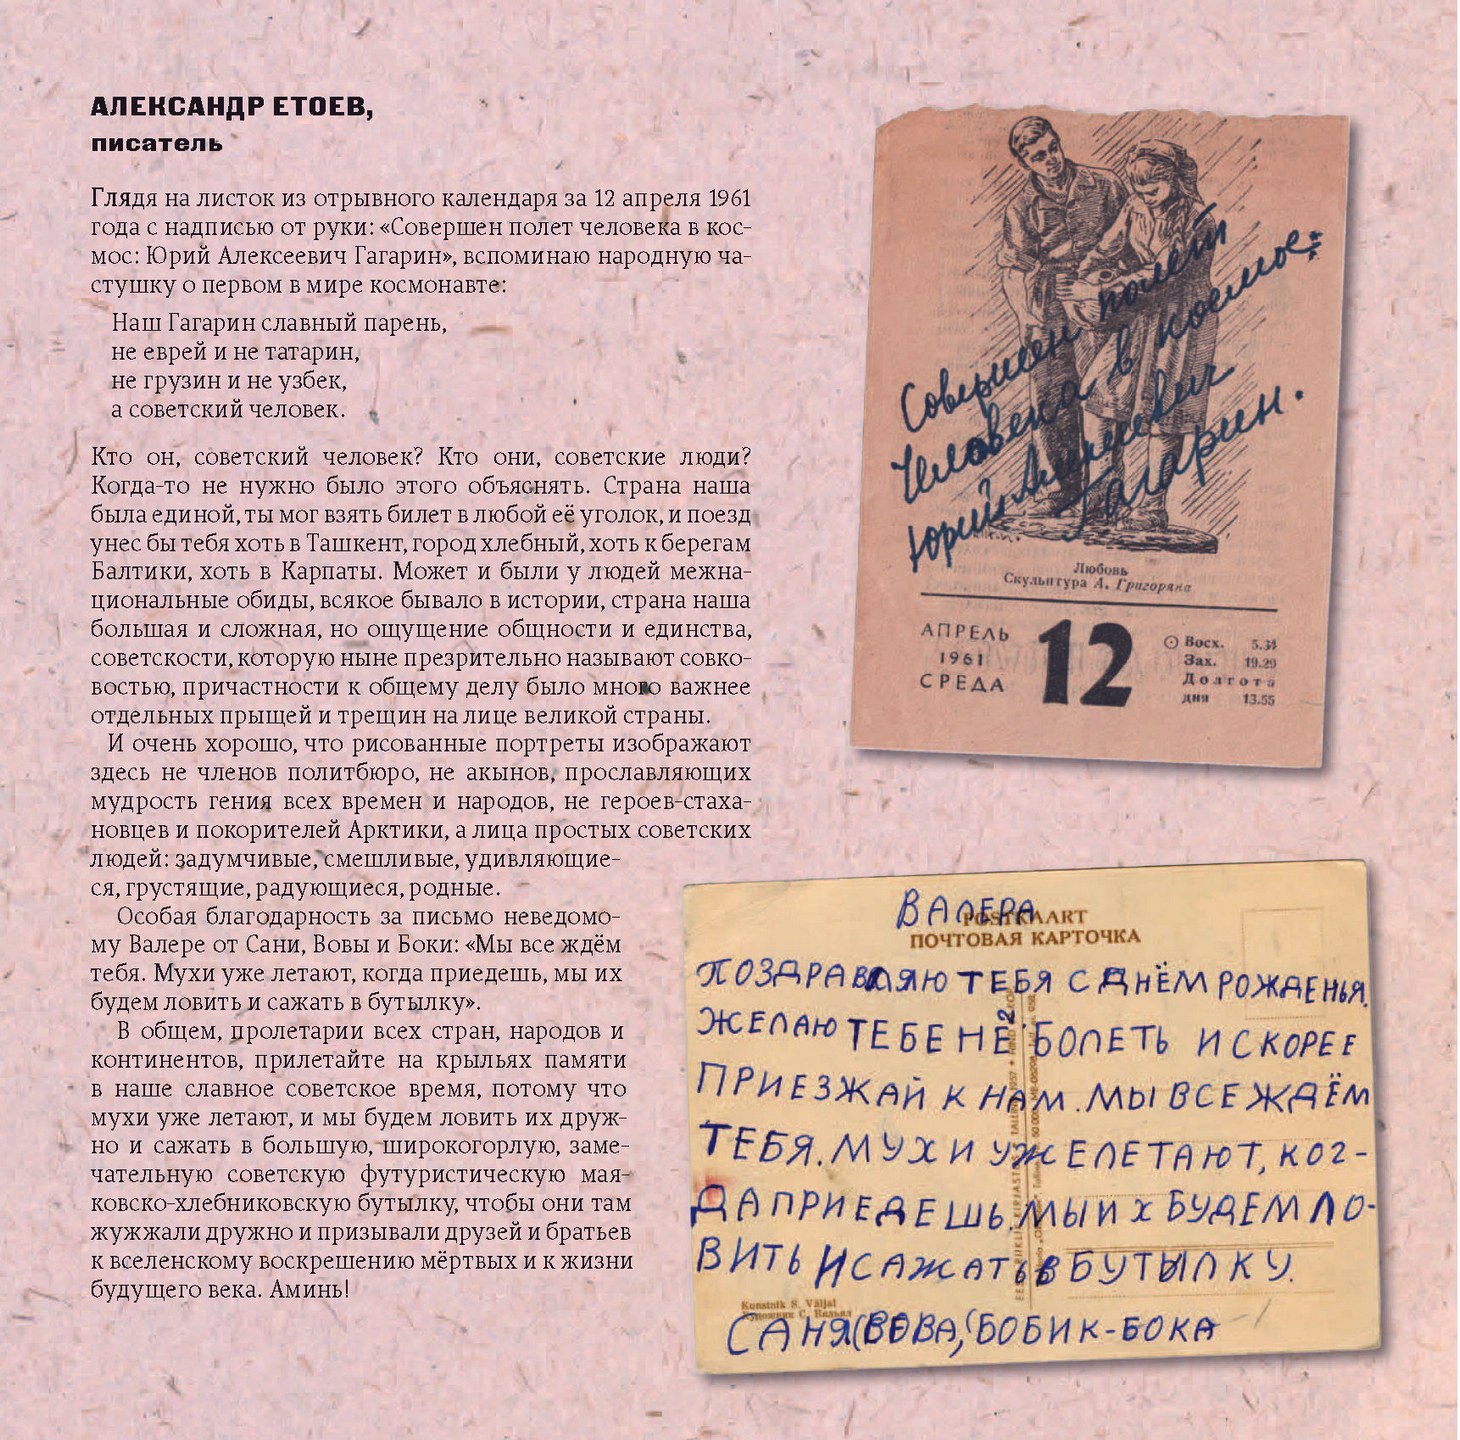 АЛЕКСАНДР ЕТОЕВ,
писатель
Глядя на листок из отрывного календаря за 12 апреля 1961
года с надписью от руки: «Совершен полет человека в кос-
мос: Юрий Алексеевич Гагарин», вспоминаю народную ча-
стушку о первом в мире космонавте:
Наш Гагарин славный парень,
не еврей и не татарин,
не грузин и не узбек,
а советский человек.
Кто он, советский человек? Кто они, советские люди?
Когда-то не нужно было этого объяснять. Страна наша
была единой, ты мог взять билет в любой её уголок, и поезд
унес бы тебя хоть в Ташкент, город хлебный, хоть к берегам
Балтики, хоть в Карпаты. Может и были у людей межна-
циональные обиды, всякое бывало в истории, страна наша
большая и сложная, но ощущение общности и единства,
советскости, которую ныне презрительно называют совко-
востью, причастности к общему делу было много важнее
отдельных прыщей и трещин на лице великой страны.
И очень хорошо, что рисованные портреты изображают
здесь не членов политбюро, не акынов, прославляющих
мудрость гения всех времен и народов, не героев-стаха-
новцев и покорителей Арктики, а лица простых советских
людей: задумчивые, смешливые, удивляющие-
ся, грустящие, радующиеся, родные.
Особая благодарность за письмо неведомо-
му Валере от Сани, Вовы и Боки: «Мы все ждём
тебя. Мухи уже летают, когда приедешь, мы их
будем ловить и сажать в бутылку».
В общем, пролетарии всех стран, народов и
континентов, прилетайте на крыльях памяти
в наше славное советское время, потому что
мухи уже летают, и мы будем ловить их друж-
но и сажать в большую, широкогорлую, заме-
чательную советскую футуристическую мая-
ковско-хлебниковскую бутылку, чтобы они там
жужжали дружно и призывали друзей и братьев
к вселенскому воскрешению мёртвых и к жизни
будущего века. Аминь!
Совершен полет
Человека в космос:
Юрий Алексеевич
Гагарин.
Любовь
Скульптура А. Григоряна
АПРЕЛЬ
1961
СРЕДА
12
Восх. 5.34
Зах. 19.29
Долгота
дня 13.55
ВАЛЕРА
POSTKAART
ПОЧТОВАЯ КАРТОЧКА
ПОЗДРАВЛЯЮ ТЕБЯ С ДНЁМ РОЖДЕНЬЯ.
ЖЕЛАЮ ТЕБЕ НЕ БОЛЕТЬ И СКОРЕЕ
ПРИЕЗЖАЙ К НАМ. МЫ ВСЕ ЖДЁМ
ТЕБЯ. МУХИ УЖЕ ЛЕТАЮТ, КОГ-
ДА ПРИЕДЕШЬ. МЫ ИХ БУДЕМ ЛО-
ВИТЬ И САЖАТЬ В БУТЫЛКУ.
Kunstnik S. Väljal
Художник С. Вяльял
САНЯ (ВОВА, БОБИК-БОКА